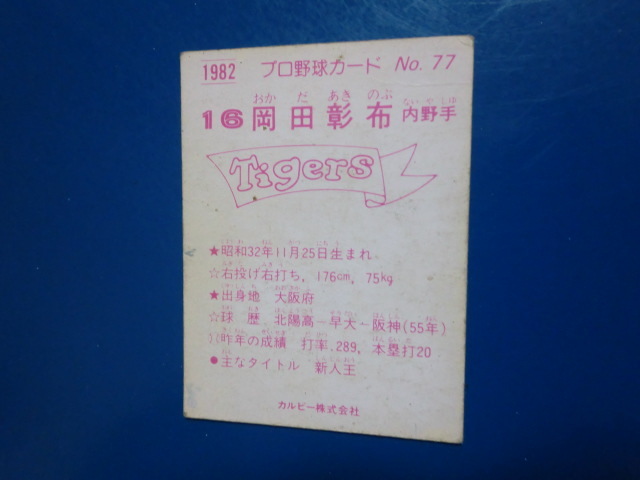 1982 プロ野球カード No. 77
おか だ あき のぶ ない や しゅ
16 岡田彰布 内野手
Tigers
★昭和32年11月25日生まれ
☆右投げ右打ち, 176cm, 75kg
★出身地 大阪府
☆球歴 北陽高－早大－阪神(55年)
☆昨年の成績 打率.289, 本塁打20
●主なタイトル 新人王
カルビー株式会社